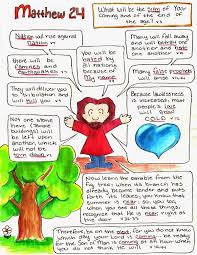 Matthew 24
What will be the sign of Your
Coming and of the end of
the age? v3
Nation will rise against
Nation v7
there will be
famines and
earthquakes v7
You will be
hated by
all nations
because of
My name
Many will fall away
and will betray one
another and hate
one another v10
Many false prophets
will arise
They will deliver you
to tribulation and
will kill you
Because
lawlessness is
increased, most
people's love
will grow
COLD v12
Not one stone
here (Temple
buildings) will
be left upon
another, which
will not be
torn down
Now learn the parable from the
fig tree; when its branch has
already become tender and puts
forth its leaves, you know that
summer is near; so, you too,
when you see all these things,
recognize that He is near, right at
the door
Therefore, be on the alert, for you do not know
which day your Lord is coming
for the Son of Man is coming at an hour when
you do not think He will